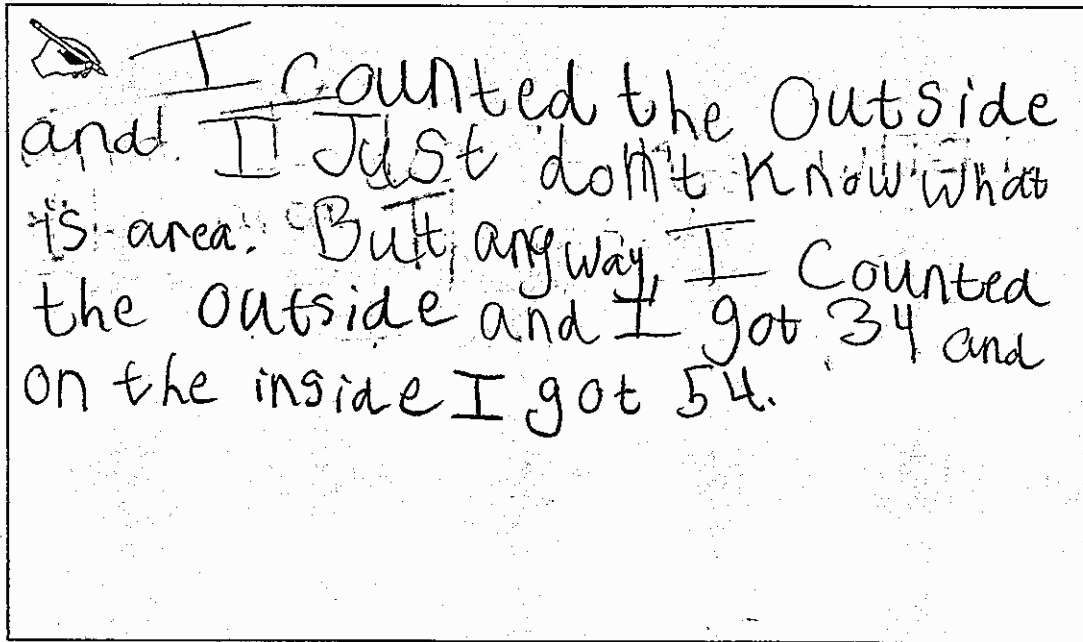 I counted the Outside
and I Just don't know what
is area. But, anyway, I Counted
the outside and I got 34 and
on the inside I got 54.